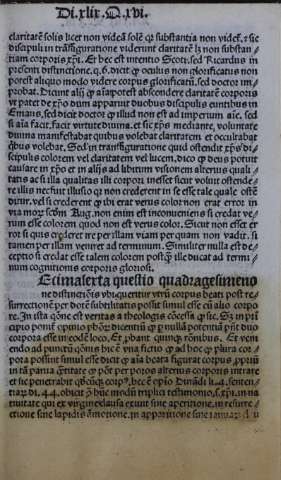 Di.xlix. Q.xvi.
claritatē solis licet non videā solē q̃ substantia non videt̃. z sic
discipuli in trāsfiguratione viderunt claritatē ls non substan-
tiam corporis xp̄i. Et hec est intentio Scoti. sed Ricardus in
presenti distinctione. q. 6. dicit q̃ oculus non glorificatus non
potest aliquo modo videre corpus glorificatū. sed doctor im
probat. Dicunt alij q̃ aīa potest abscondere claritatē corporis
vt patet de xp̄o dum apparuit duobus discipulis euntibus in
Emaus. sed dicit doctor q̃ illud non est ad imperium aīe. sed
si aīa facit, facit virtute diuina. et sic xp̄s mediante, voluntate
diuina manifestabat quibus volebat claritatem et occultabat
quibus volebat. Sed in trāsfiguratione quid ostendit xp̄s di-
scipulis colorem vel claritatem vel lucem. dico q̃ deus potuit
causare in xp̄o et in alijs ad libitum visionem alterius quali
tatis ac si illa qualitas illi corpori inesset sicut voluit ostende-
re illis nec fuit illusio q̃ non crederent in se esse tale quale ostē
ditur. vel si crederent q̃ ibi erat verus color non erat error in
via mor. scōm Aug. non enim est inconueniens si credat ve-
rum esse colorem quod non est verus color. Sicut non esset er
ror si quis crederet ire per viam per quam non vadit. si
tamen per illam veniret ad terminum. Similiter nulla est de-
ceptio si credat esse talem colorem postq̃ ille ducat ad termi-
num cognitionis corporis gloriosi.
Ecimasexta questio quadragesimeno
ne distinctiōis vbi queritur vtrū corpus beati post re
surrectionē per dotē subtilitatis possit simul esse cū alio corpo
re. In ista q̄one est veritas a theologis cōcessa q̃ sic. Sz in prī
cipio ponit̃ opinio ph̄orū dicentiū q̃ p nullā potentiā pñt duo
corpora esse in eodē loco. Et pbant quinq̃ rōnibus. Et veni
endo ad punctū q̄onis hic ē vna fictio q̃ ad hoc q̃ plura cor
pora possint simul esse dicit q̃ aīa beata figurat corpus
in tā parua q̄titate q̃ pōt per poros alterius corporis intrare
et sic penetrabit quodcūq̃ corp9. hec ē opīo li. 4. senten-
tiarū di. 44. obicit ꝑ hūc modū triplici testimonio. s. xp̄i. in na
tiuitate qui ex virgine clausa exiuit sine apertione. in resurre-
ctione sine lapidis amotione. in apparitione sine